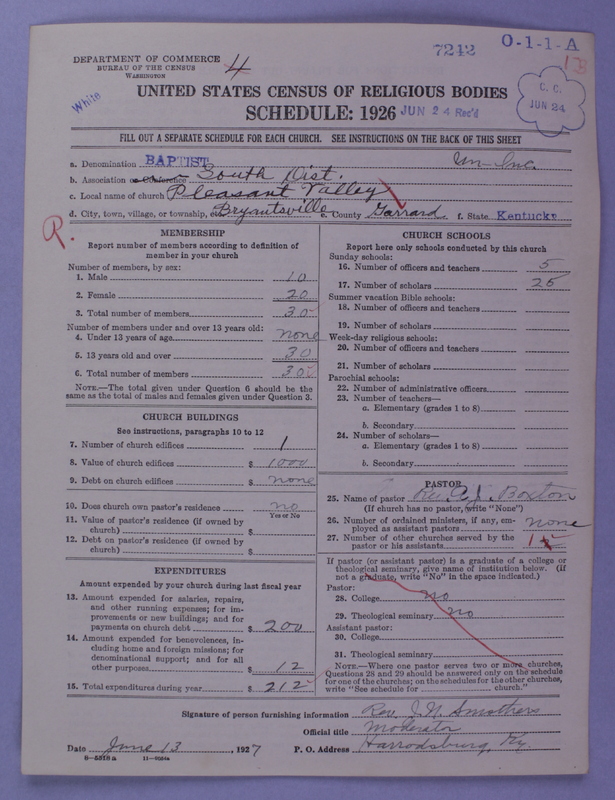 7242 O-1-1-A
DEPARTMENT OF COMMERCE 4 13
BUREAU OF THE CENSUS
WASHINGTON
White
UNITED STATES CENSUS OF RELIGIOUS BODIES
SCHEDULE: 1926 JUN 24 Rec'd
C. C.
JUN 24
FILL OUT A SEPARATE SCHEDULE FOR EACH CHURCH. SEE INSTRUCTIONS ON THE BACK OF THIS SHEET
a. Denomination BAPTIST Un-Inc.
b. Association or Conference South Dist.
c. Local name of church Pleasant Valley
d. City, town, village, or township, etc. Bryantsville e. County Garrard f. State Kentucky
R.
MEMBERSHIP
Report number of members according to definition of
member in your church
Number of members, by sex:
1. Male 10
2. Female 20
3. Total number of members 30
Number of members under and over 13 years old:
4. Under 13 years of age none
5. 13 years old and over 30
6. Total number of members 30
NOTE.—The total given under Question 6 should be the
same as the total of males and females given under Question 3.
CHURCH BUILDINGS
See instructions, paragraphs 10 to 12
7. Number of church edifices 1
8. Value of church edifices $ 1000
9. Debt on church edifices $ none
10. Does church own pastor's residence no
Yes or No
11. Value of pastor's residence (if owned by
church) $
12. Debt on pastor's residence (if owned by
church) $
EXPENDITURES
Amount expended by your church during last fiscal year
13. Amount expended for salaries, repairs,
and other running expenses; for im-
provements or new buildings; and for
payments on church debt $ 200
14. Amount expended for benevolences, in-
cluding home and foreign missions; for
denominational support; and for all
other purposes $ 12
15. Total expenditures during year $ 212
CHURCH SCHOOLS
Report here only schools conducted by this church
Sunday schools:
16. Number of officers and teachers 5
17. Number of scholars 25
Summer vacation Bible schools:
18. Number of officers and teachers
19. Number of scholars
Week-day religious schools:
20. Number of officers and teachers
21. Number of scholars
Parochial schools:
22. Number of administrative officers
23. Number of teachers—
a. Elementary (grades 1 to 8)
b. Secondary
24. Number of scholars—
a. Elementary (grades 1 to 8)
b. Secondary
PASTOR
25. Name of pastor Rev. P. J. Boxton
(If church has no pastor, write "None")
26. Number of ordained ministers, if any, em-
ployed as assistant pastors none
27. Number of other churches served by the
pastor or his assistants 1
If pastor (or assistant pastor) is a graduate of a college or
theological seminary, give name of institution below. (If
not a graduate, write "No" in the space indicated.)
Pastor:
28. College no
29. Theological seminary no
Assistant pastor:
30. College
31. Theological seminary
NOTE.—Where one pastor serves two or more churches,
Questions 28 and 29 should be answered only on the schedule
for one of the churches; on the schedules for the other churches,
write "See schedule for church."
Signature of person furnishing information Rev. J. N. Smothers
Official title Moderator
Date June 13, 1927 P. O. Address Harrodsburg, Ky.